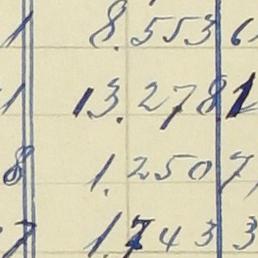 1 8.553 6
1 13.278 1
8 1.250 7,
7 1.743 3